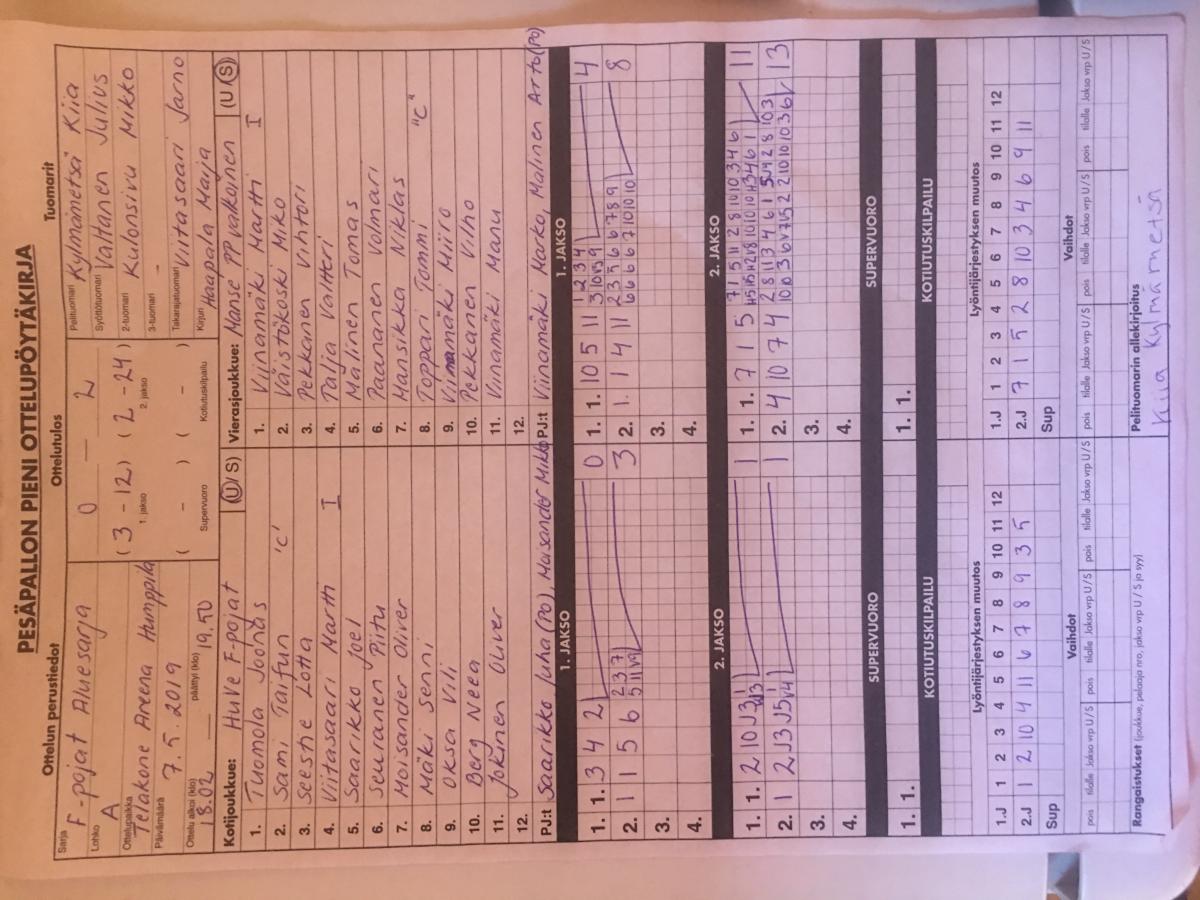 PESÄPALLON PIENI OTTELUPÖYTÄKIRJA
Ottelun perustiedot
Ottelutulos
Tuomarit
Sarja
F-pojat Aluesarja
Lohko
A
Ottelupaikka
Teräkone Areena Humppila
Päivämäärä
7.5.2019
Ottelu alkoi (klo)
18.02
päättyi (klo)
19.50
0 — 2
( 3 - 12 ) ( 2 - 24 )
1. jakso 2. jakso
( - ) ( - )
Supervuoro Kotiutuskilpailu
Pelituomari Kylmämetsä Kiia
Syöttötuomari Valtanen Julius
2-tuomari Kulonsivu Mikko
3-tuomari -
Takarajatuomari Viitasaari Jarno
Kirjuri Haapala Maija
Kotijoukkue: HuVe F-pojat (U/S)
1. Tuomola Joonas
2. Sami Taifun 'C'
3. Seestie Lotta
4. Viitasaari Martti I
5. Saarikko Joel
6. Seuranen Piitu
7. Moisander Oliver
8. Mäki Senni
9. Oksa Vili
10. Berg Neea
11. Jokinen Oliver
12.
PJ:t Saarikko Juha (PO), Moisander Mikko
Vierasjoukkue: Manse PP valkoinen (U/S)
1. Viinamäki Martti I
2. Väistökoski Miko
3. Pekkanen Vihtori
4. Palja Valtteri
5. Malinen Tomas
6. Paananen Ilmari
7. Mansikka Niklas
8. Toppari Tommi "C"
9. Viinamäki Miiro
10. Pekkanen Vilho
11. Viinamäki Manu
12.
PJ:t Viinamäki Marko, Malinen Arto (PO)
1. JAKSO
1. 1. 3 4 2 0
2. 1 1 5 6 3
3.
4.
1. JAKSO
1. 1. 10 5 11 4
2. 1. 1 4 11 8
3.
4.
2. JAKSO
1. 1. 2 10 1
2. 1 1
3.
4.
2. JAKSO
1. 1. 7 1 5 11
2. 4 10 7 4 13
3.
4.
SUPERVUORO
1. 1.
SUPERVUORO
1. 1.
KOTIUTUSKILPAILU
KOTIUTUSKILPAILU
Lyöntijärjestyksen muutos
1.J 1 2 3 4 5 6 7 8 9 10 11 12
2.J 1 2 10 4 11 6 7 8 9 3 5
Sup
Lyöntijärjestyksen muutos
1.J 1 2 3 4 5 6 7 8 9 10 11 12
2.J 7 1 5 2 8 10 3 4 6 9 11
Sup
Vaihdot
pois tilalle Jakso vrp U/S pois tilalle Jakso vrp U/S pois tilalle Jakso vrp U/S
Vaihdot
pois tilalle Jakso vrp U/S pois tilalle Jakso vrp U/S pois tilalle Jakso vrp U/S
Rangaistukset (joukkue, pelaaja nro, jakso vrp U/S ja syy)
Pelituomarin allekirjoitus
Kiia Kylmämetsä